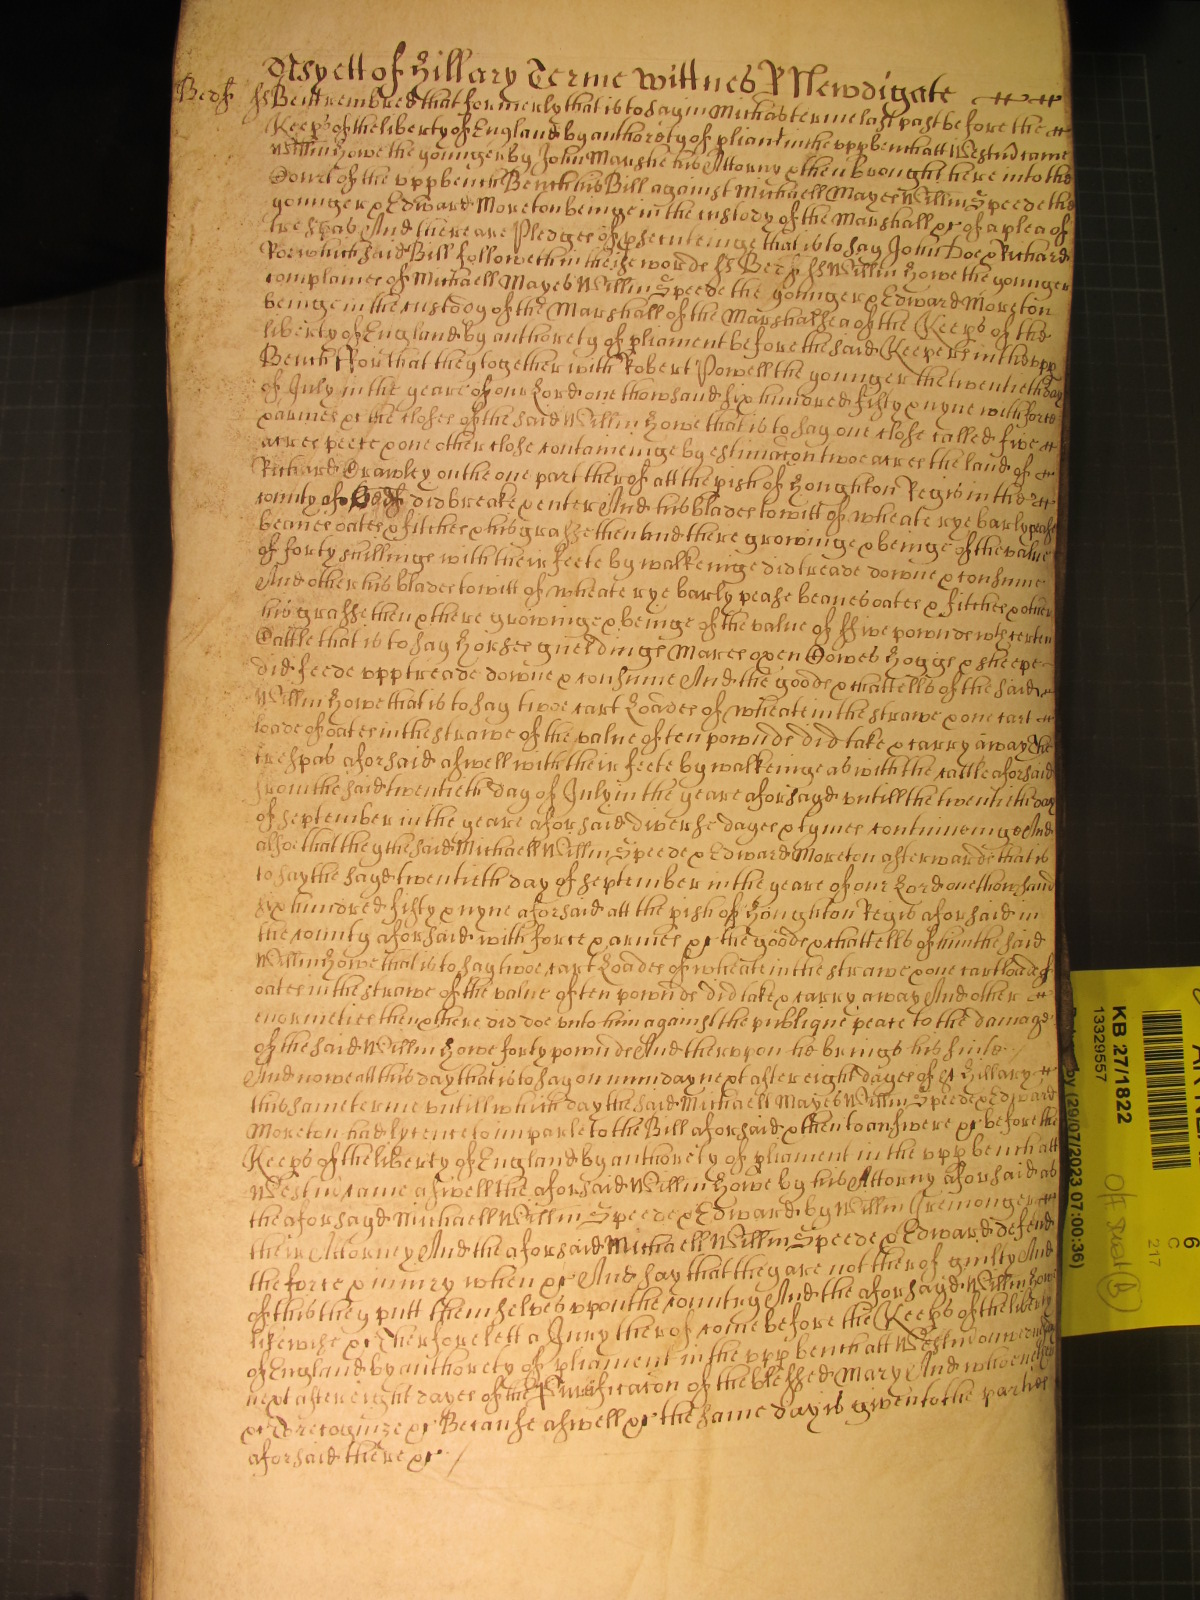 As yett of Hillary Terme Wittnes R Newdigate
Bedf ss Be itt remembred that formerly that is to say in Michas terme last past before the
Keeps of the liberty of England by authorety of pliamt in the vpp bench att Westm came
Willm Howe the younger by John Marshe his Attorny & then brought here into the
Court of the vpp bench Bench his Bill against Michaell Mayes Willm Speede the
younger & Edward Moreton beinge in the custody of the Marshall &c of a plea of
trespas And there are Pledges of psecuteinge that is to say John Doe & Richard
Roe which said Bill followeth in theise words ss Bedf ss Willm Howe the younger
complaines of Michaell Mayes Willm Speede the younger & Edward Moreton
beinge in the custody of the Marshall of the Marshalsea of the Keeps of the
liberty of England by authorety of pliament before the said Keepers in the vpp
Bench For that they together with Robert Powell the younger the twentieth day
of July in the yeare of our Lord one thowsand six hundred fifty & nyne with force
& armes &c the closes of the said Willm Howe that is to say one close called five
acres peece & one other close conteineinge by estimacon twoe acres the land of
Richard Crawley on the one part therof att the pish of Houghton Regis in the
county of Bedf did breake & enter And his blades to witt of wheate rye barly pease
beanes oates & fitches & his grasse then and there groweinge & beinge of the value
of forty shillings with their feete by walkeinge did treade downe & consume
And other his blades to witt of wheate rye barly pease beanes oates & fitches & other
his grasse then & there groweinge & beinge of the value of five pownds wth certen
Cattle that is to say horses gueldings Mares oxen Cowes hoggs & sheepe
did feede vpp treade downe & consume And the goods & chattells of the said
Willm Howe that is to say twoe cart Loades of wheate in the strawe & one cart
loade of oates in the strawe of the value of ten pownds did take & carry away The
trespas aforsaid aswell with their feete by walkeinge as with the cattle aforsaid
from the said twentieth day of July in the yeare aforsayd vntill the twentieth day
of September in the yeare aforsaid diverse dayes & tymes continueinge And
alsoe that they the said Michaell Willm Speede & Edward Moreton afterwards that is
to say the sayd twentieth day of September in the yeare of our Lord one thowsand
six hundred fifty & nyne aforsaid att the pish of Houghton Regis aforsaid in
the county aforsaid with force & armes &c the goods & chattells of him the said
Willm Howe that is to say twoe cart Loades of wheate in the strawe & one cart loade of
oates in the strawe of the value of ten pownds did take & carry away And other
enormeties then & there did doe vnto him against the publique peace to the damage
of the said Willm Howe forty pownds And thervpon he brings his suite
And nowe att this day that is to say on munday next after eight dayes of St Hillary
this same terme vntill which day the said Michaell Mayes Willm Speede & Edward
Moreton had lycence to imparle to the Bill aforsaid & then to answere &c before the
Keeps of the liberty of England by authorety of pliament in the vpp bench att
Westm came aswell the aforsaid Willm Howe by his Attorny aforsaid as
the aforsayd Michaell Willm Speede & Edward by Willm Iremonger
their Attorney And the aforsaid Michaell Willm Speede & Edward defend
the force & iniury when &c And say that they are not therof guilty And
of this they putt themselves vpon the country And the aforsayd Willm Howe
likewise &c Therfore lett a Jury therof come before the Keeps of the liberty
of England by authorety of pliament in the vpp bench att Westm on
next after eight dayes of the Purificacon of the blessed Mary And whoe neither
&c To recognize &c Because aswell &c the same day is given to the parties
aforsaid there &c
KB 27/1822
13329557
(29/07/2023 07:00:36)
6
C
217